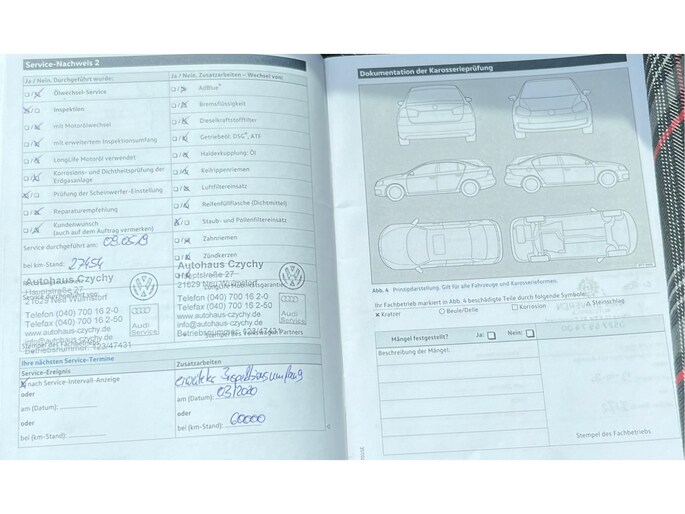 Service-Nachweis 2
Ja / Nein. Durchgeführt wurde:
Ölwechsel-Service
Inspektion
mit Motorölwechsel
mit erweitertem Inspektionsumfang
LongLife Motoröl verwendet
Korrosions- und Dichtheitsprüfung der
Erdgasanlage
Prüfung der Scheinwerfer-Einstellung
Reparaturempfehlung
Kundenwunsch
(auch auf dem Auftrag vermerken)
Service durchgeführt am: 09.05.19
bei km-Stand: 27454
Autohaus Czychy
Hauptstraße 27
21629 Neu Wulmstorf
Service durchgeführt von:
Telefon (040) 700 16 2-0
Telefax (040) 700 16 2-50
www.autohaus-czychy.de
info@autohaus-czychy.de
Betriebsnummer: 123/47431
Stempel des Fachbetriebs
Audi
Service
Ja / Nein. Zusatzarbeiten – Wechsel von:
AdBlue®
Bremsflüssigkeit
Dieselkraftstofffilter
Getriebeöl: DSG®, ATF
Haldexkupplung: Öl
Keilrippenriemen
Luftfiltereinsatz
Reifenfüllflasche (Dichtmittel)
Staub- und Pollenfiltereinsatz
Zahnriemen
Zündkerzen
Autohaus Czychy
Hauptstraße 27
21629 Neu Wulmstorf
Telefon (040) 700 16 2-0
Telefax (040) 700 16 2-50
www.autohaus-czychy.de
info@autohaus-czychy.de
Betriebsnummer: 123/47431
Stempel des Volkswagen Partners
Audi
Service
Ihre nächsten Service-Termine
Service-Ereignis
nach Service-Intervall-Anzeige
oder
am (Datum):
oder
bei (km-Stand):
Zusatzarbeiten
Inspektionsumfang
am (Datum): 03/2020
oder
bei (km-Stand): 60000
4
Dokumentation der Karosserieprüfung
Abb. 4 Prinzipdarstellung. Gilt für alle Fahrzeuge und Karosserieformen.
Ihr Fachbetrieb markiert in Abb. 4 beschädigte Teile durch folgende Symbole:
x Kratzer ○ Beule/Delle □ Korrosion △ Steinschlag
Mängel festgestellt? Ja: Nein:
Beschreibung der Mängel:
Stempel des Fachbetriebs